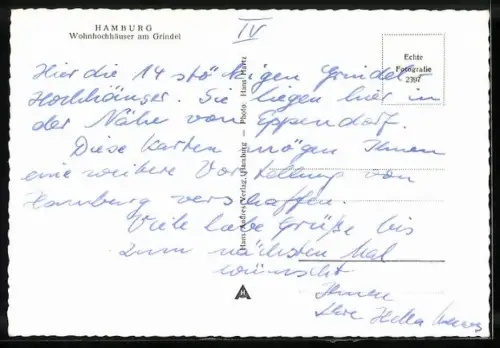 HAMBURG
Wohnhochhäuser am Grindel
IV
Echte
Fotografie
2397
Hier die 14 stöckigen Grindel-
Hochhäuser. Sie liegen hier in
der Nähe von Eppendorf.
Diese Karten mögen Ihnen
eine weitere Vorstellung von
Hamburg verschaffen.
Viele liebe Grüße bis
zum nächsten Mal
wünscht
Ihnen
Ihre Hella
Hans Andres Verlag, Hamburg - Photo: Hans Hartz